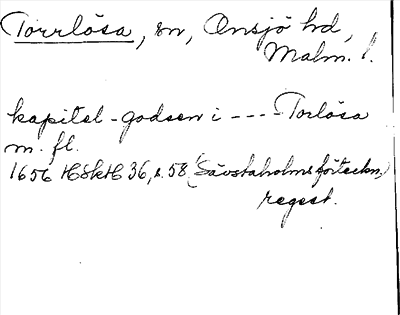 Torrlösa, sn, Onsjö hd,
Malm. l.
kapitel-godsen i ---- Torlösa
m. fl.
1656 HSkH 36, s. 58 (Sävstaholms förteckn.)
regest.